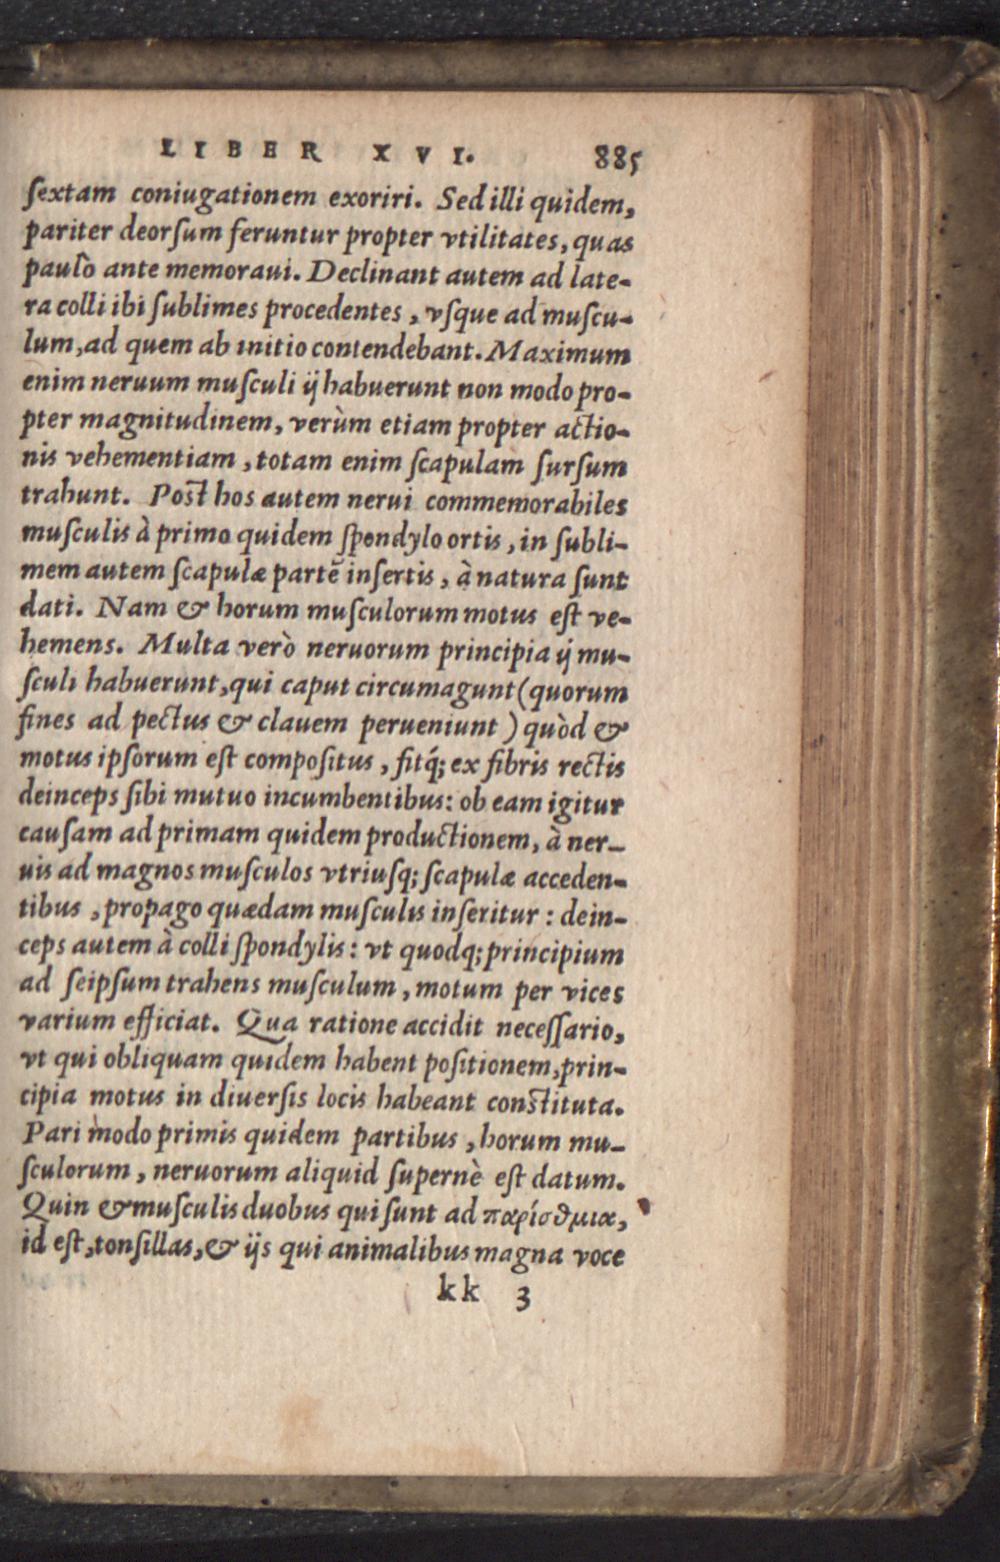 LIBER XVI. 885
ſextam coniugationem exoriri. Sed illi quidem,
pariter deorſum feruntur propter vtilitates, quas
paulò ante memoraui. Declinant autem ad late-
ra colli ibi ſublimes procedentes, vſque ad muſcu-
lum, ad quem ab initio contendebant. Maximum
enim neruum muſculi ij habuerunt non modo pro-
pter magnitudinem, verùm etiam propter actio-
nis vehementiam, totam enim ſcapulam ſurſum
trahunt. Poſt hos autem nerui commemorabiles
muſculis à primo quidem ſpondylo ortis, in ſubli-
mem autem ſcapulæ partẽ inſertis, à natura ſunt
dati. Nam & horum muſculorum motus eſt ve-
hemens. Multa verò neruorum principia ij mu-
ſculi habuerunt, qui caput circumagunt (quorum
fines ad pectus & clauem perueniunt) quòd &
motus ipſorum eſt compoſitus, fitq́; ex fibris rectis
deinceps ſibi mutuo incumbentibus: ob eam igitur
cauſam ad primam quidem productionem, à ner-
uis ad magnos muſculos vtriuſq; ſcapulæ acceden-
tibus, propago quædam muſculis inſeritur: dein-
ceps autem à colli ſpondylis: vt quodq; principium
ad ſeipſum trahens muſculum, motum per vices
varium efficiat. Qua ratione accidit neceſſario,
vt qui obliquam quidem habent poſitionem, prin-
cipia motus in diuerſis locis habeant conſtituta.
Pari modo primis quidem partibus, horum mu-
ſculorum, neruorum aliquid ſupernè eſt datum.
Quin & muſculis duobus qui ſunt ad παρίσθμια,
id eſt, tonſillas, & ijs qui animalibus magna voce
kk 3